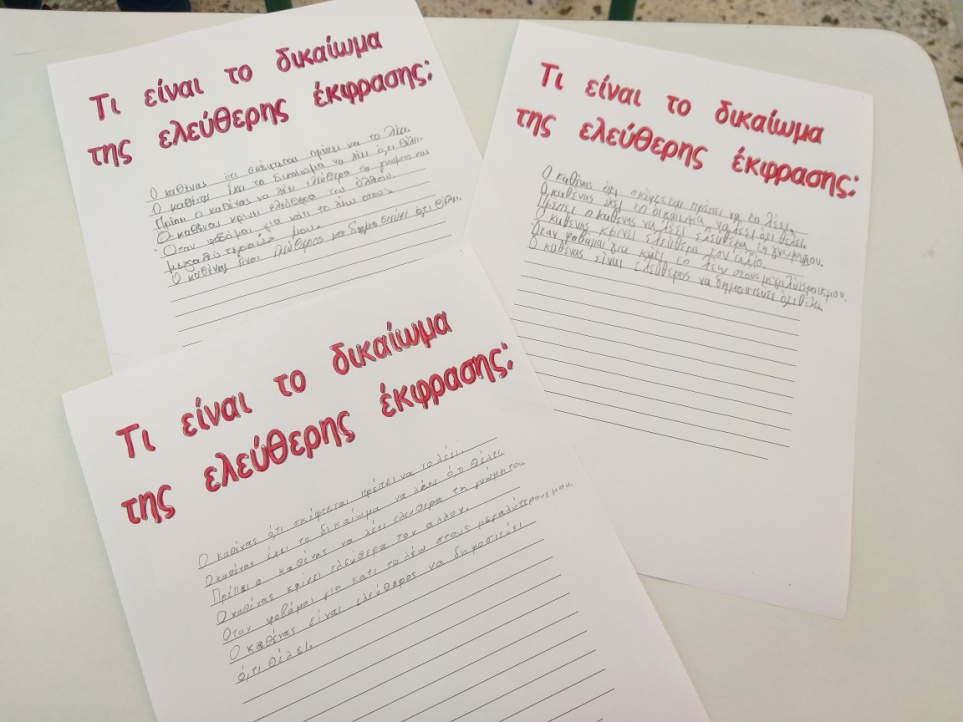 Τι είναι το δικαίωμα
της ελεύθερης έκφρασης;
Ο καθένας ότι σκέφτεται πρέπει να το λέει.
Ο καθένας έχει το δικαίωμα να λέει ό,τι θέλει.
Πρέπει ο καθένας να λέει ελεύθερα τη γνώμη του
Ο καθένας κρίνει ελεύθερα τον άλλον.
Όταν φοβάμαι για κάτι το λέω στους
μεγαλύτερούς μου.
Ο καθένας είναι ελεύθερος να δημοσιεύει ό,τι θέλει.
Τι είναι το δικαίωμα
της ελεύθερης έκφρασης;
Ο καθένας ότι σκέφτεται πρέπει να το λέει.
Ο καθένας έχει το δικαίωμα να λέει ότι θέλει.
Πρέπει ο καθένας να λέει ελεύθερα τη γνώμη του.
Ο καθένας κρίνει ελεύθερα τον άλλο.
Όταν φοβάμαι για κάτι το λέω στους μεγαλύτερους μου.
Ο καθένας είναι ελεύθερος να δημοσιεύει ότι θέλει.
Τι είναι το δικαίωμα
της ελεύθερης έκφρασης;
Ο καθένας ό,τι σκέφτεται πρέπει να το λέει.
Ο καθένας έχει το δικαίωμα να λέει ό,τι θέλει
Πρέπει ο καθένας να λέει ελεύθερα τη γνώμη του
Ο καθένας κρίνει ελεύθερα τον άλλον.
Όταν φοβάμαι για κάτι το λέω στους μεγαλύτερους μου.
Ο καθένας είναι ελεύθερος να δημοσιεύει
ό,τι θέλει.